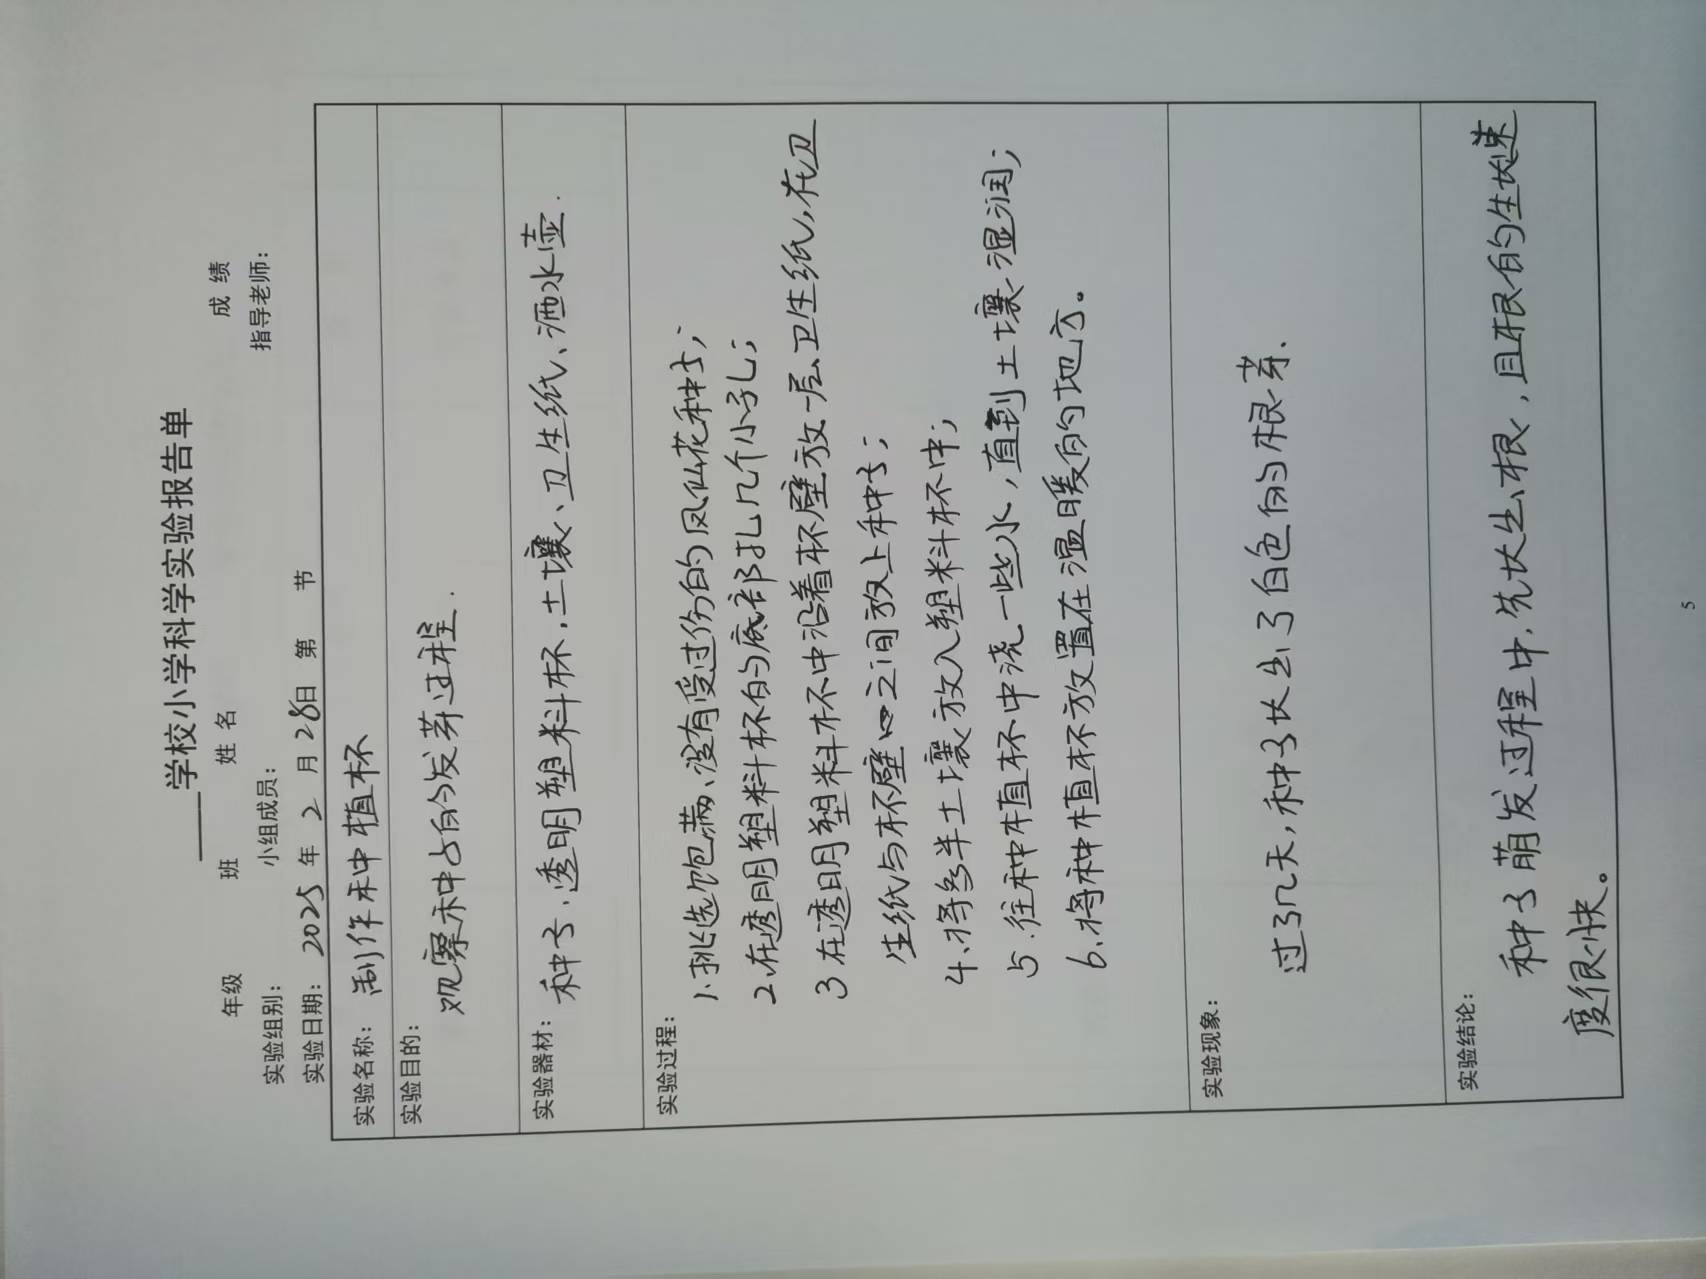 ____学校小学科学实验报告单
年级 班 姓名 成绩
实验组别： 小组成员： 指导老师：
实验日期： 2025 年 2 月 28日 第 节
实验名称： 制作种植杯
实验目的：
观察种子的发芽过程.
实验器材： 种子、透明塑料杯，土壤、卫生纸、洒水壶.
实验过程：
1.挑选饱满、没有受过伤的凤仙花种子；
2.在透明塑料杯的底部扎几个小孔；
3 在透明塑料杯中沿着杯壁放一层卫生纸，在卫
生纸与杯壁之间放上种子；
4.将多半土壤放入塑料杯中；
5.往种植杯中浇一些水，直到土壤湿润；
6.将种植杯放置在温暖的地方。
实验现象：
过了几天，种子长出了白色的根芽.
实验结论：
种子萌发过程中，先长出根，且根的生长速
度很快。
5